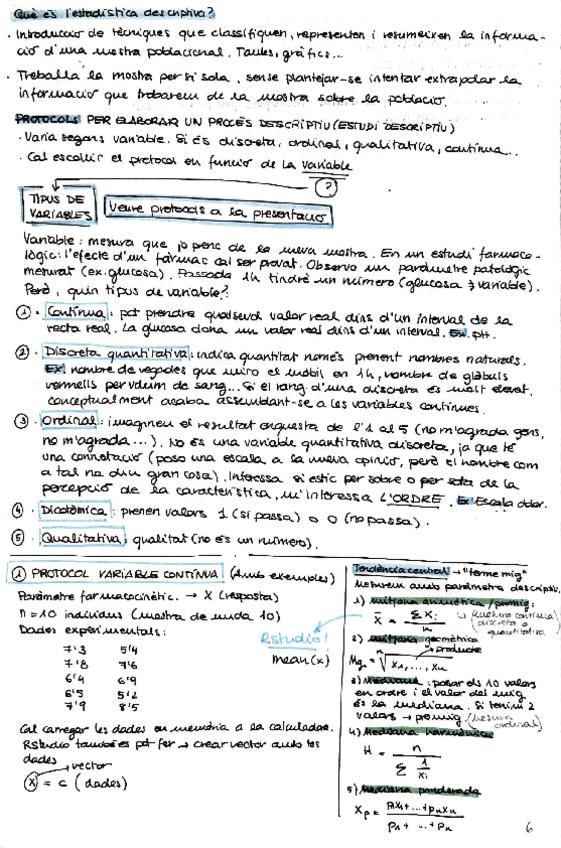 Què és l'estadística descriptiva?
· Introducció de tècniques que classifiquen, representen i resumeixen la informa-
ció d'una mostra poblacional. Taules, gràfics...
· Treballa la mostra per si sola, sense plantejar-se intentar extrapolar la
informació que trobarem de la mostra sobre la població.
PROTOCOLS PER ELABORAR UN PROCÉS DESCRIPTIU (ESTUDI DESCRIPTIU)
· Varia segons variable. Si és discreta, ordinal, qualitativa, contínua...
· Cal escollir el protocol en funció de la variable
?
TIPUS DE VARIABLES
Veure protocols a la presentació
Variable: mesura que jo penc de la meva mostra. En un estudi farmaco-
lògic: l'efecte d'un fàrmac cal ser provat. Observo un paràmetre patològic
mesurat (ex. glucosa). Passada 1h tindré un número (glucosa → variable).
Però, quin tipus de variable?
① · Contínua: pot prendre qualsevol valor real dins d'un interval de la
recta real. La glucosa dona un valor real dins d'un interval. Ex. pH.
② · Discreta quantitativa: indica quantitat només prenent nombres naturals.
Ex: nombre de vegades que miro el mòbil en 1h, nombre de glòbuls
vermells per volum de sang... Si el rang d'una discreta és molt elevat,
conceptualment acaba assemblant-se a les variables contínues.
③ · Ordinal: imaginem el resultat enquesta de l'1 al 5 (no m'agrada gens,
no m'agrada...). No és una variable quantitativa discreta, ja que té
una connotació (poso una escala a la meva opinió, però el nombre com
a tal no diu gran cosa). Interessa si estic per sobre o per sota de la
percepció de la característica, m'interessa L'ORDRE. Ex: Escala dolor.
④ · Dicotòmica: prenen valors 1 (si passa) o 0 (no passa).
⑤ · Qualitativa: qualitat (no és un número).
① PROTOCOL VARIABLE CONTÍNUA (Amb exemples)
Paràmetre farmacocinètic. → X (resposta)
n=10 individus (mostra de mida 10)
Dades experimentals:
7'3 5'4
7'8 7'6
6'4 6'9
6'5 5'2
7'9 8'5
RStudio!
mean(x)
Cal carregar les dades en memòria a la calculadora.
RStudio també es pot fer → crear vector amb les
dades
vector
X = c (dades)
Tendència central → "terme mig"
Mesurem amb paràmetre descriptiu.
1) Mitjana aritmètica / promig:
X̄ = Σ Xi / n
(mesura contínua/
discreta o
quantitativa)
2) Mitjana geomètrica
producte
Mg = ⁿ√ x1, ..., xn
3) Mediana: posar els 10 valors
en ordre i el valor del mig
és la mediana. Si tenim 2
valors → promig (mesura
ordinal)
4) Mediana harmònica
H = n / Σ 1/xi
5) Mediana ponderada
Xp = p1x1 + ... + pnxn / p1 + ... + pn
6